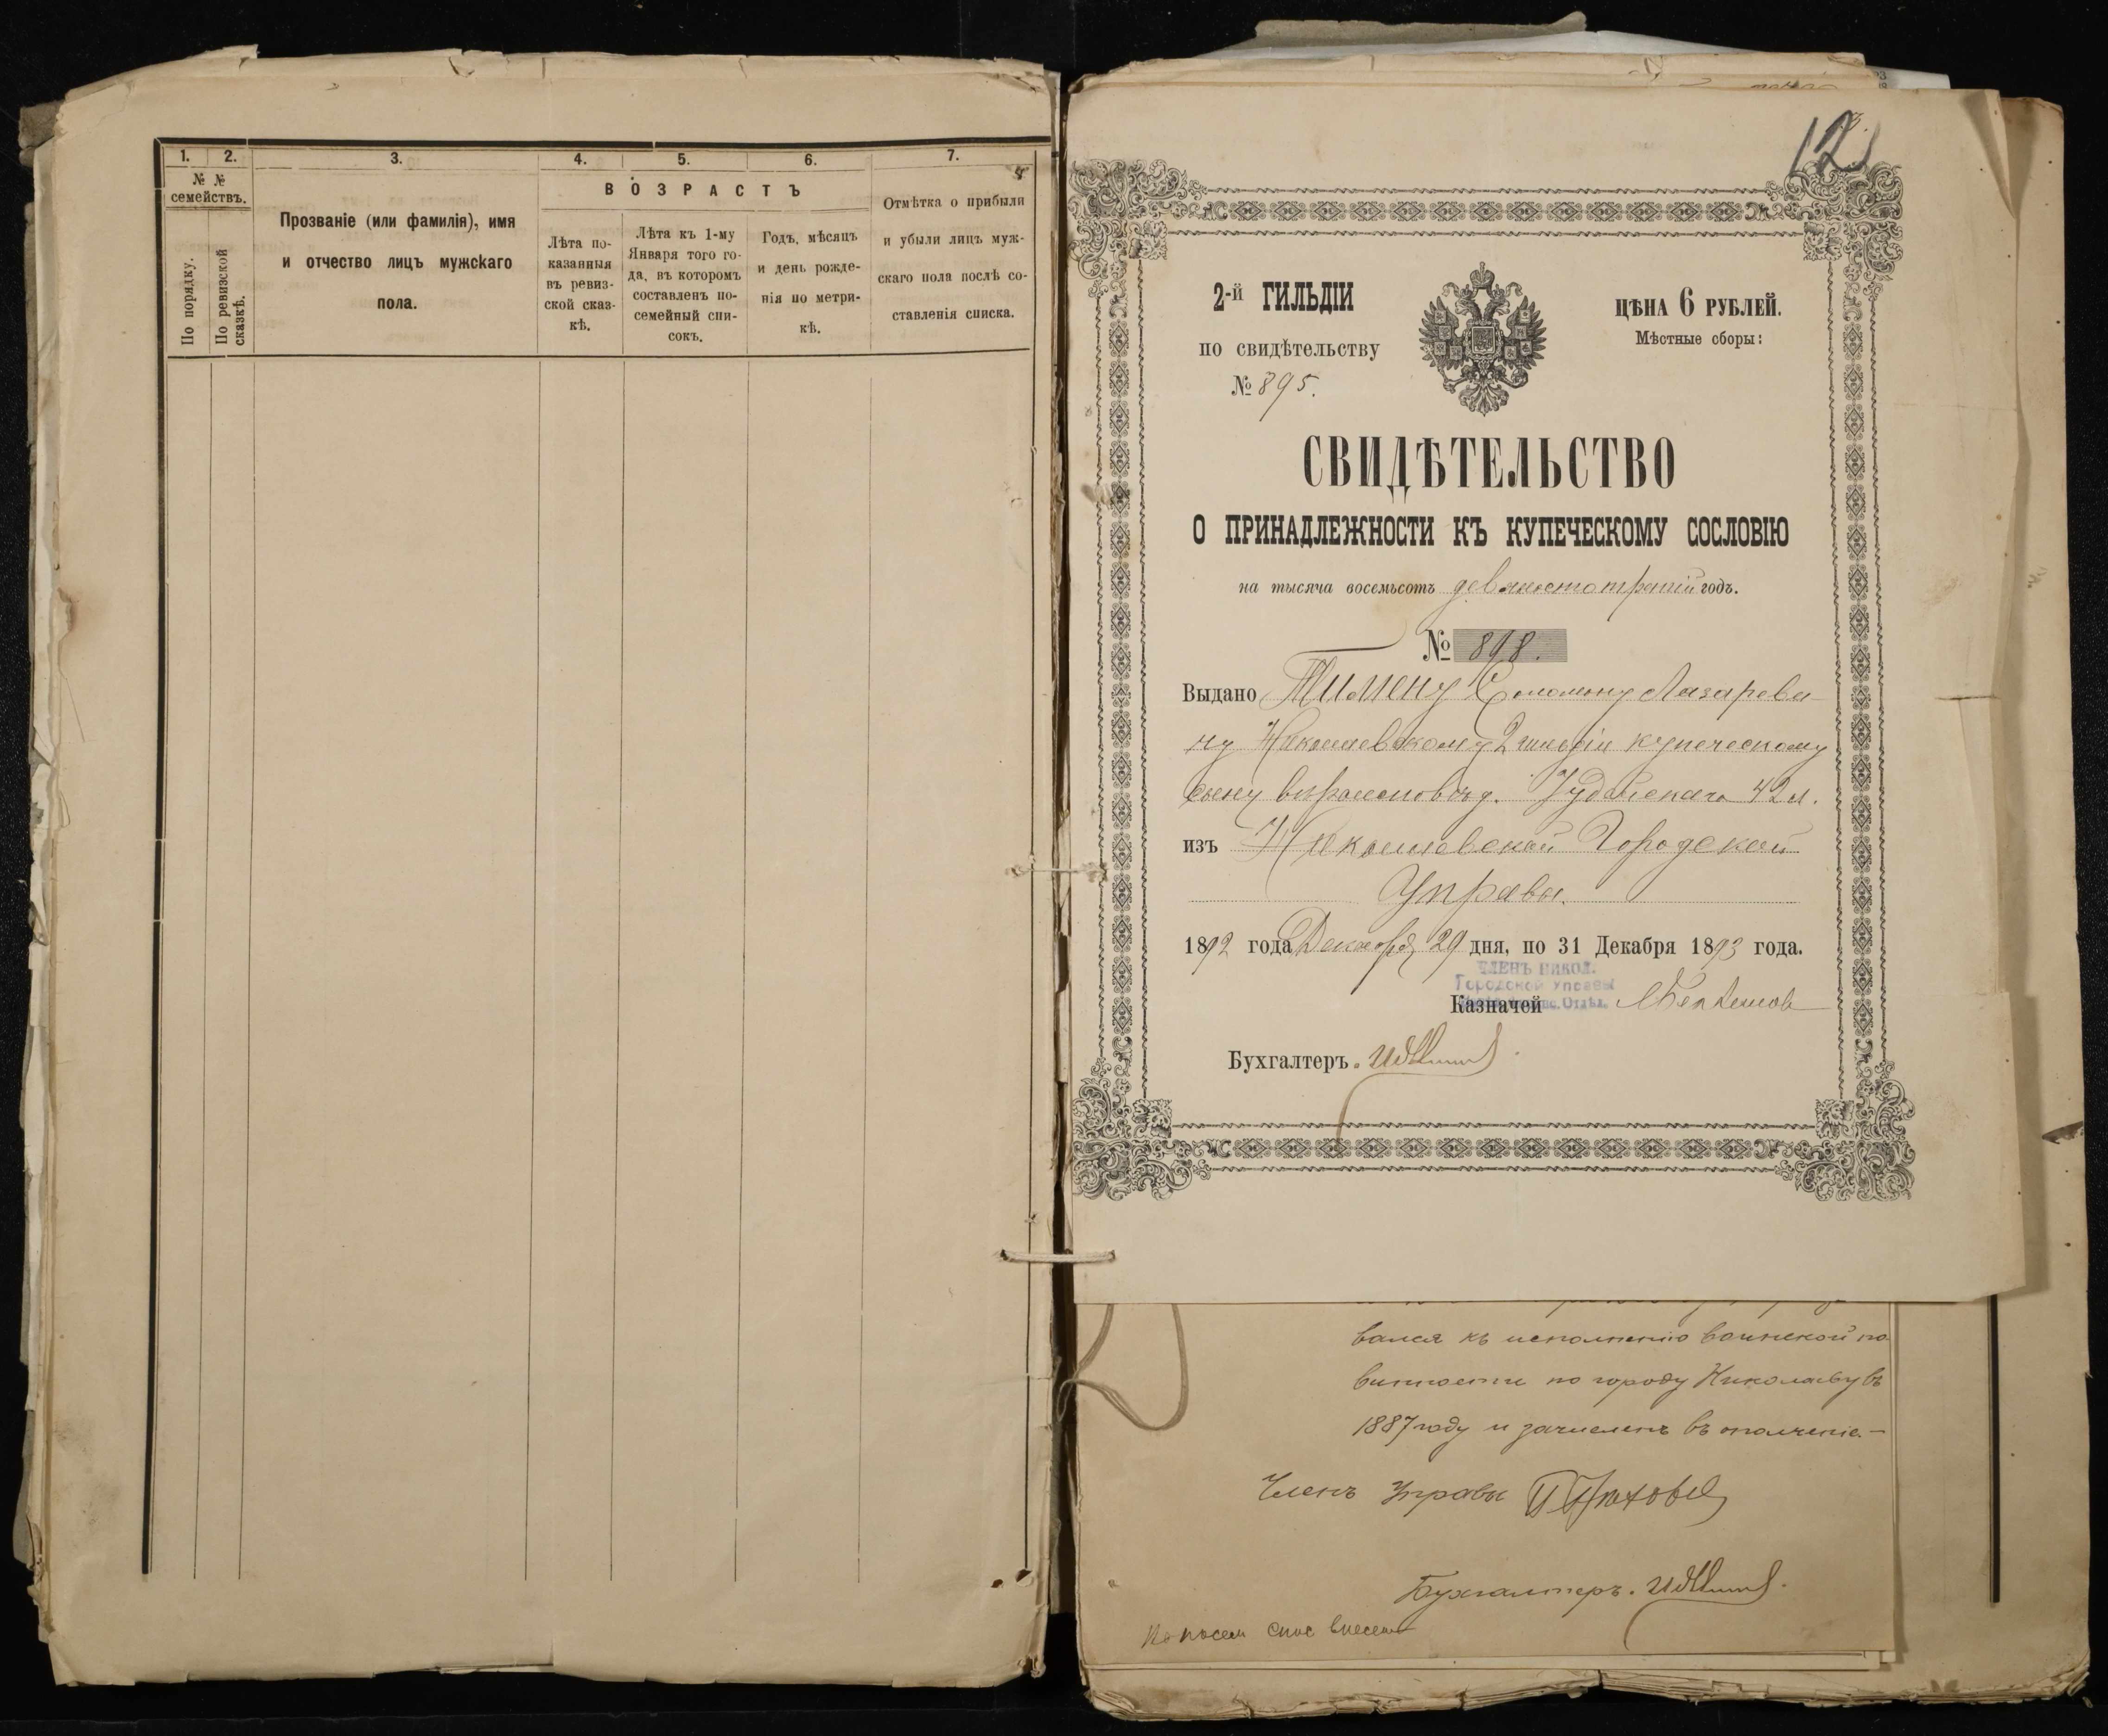 1. 2. 3. 4. 5. 6. 7.
№ № семействъ.
По порядку.
По ревизской сказкѣ.
Прозваніе (или фамилія), имя
и отчество лицъ мужскаго
пола.
ВОЗРАСТЪ
Лѣта по-
казанныя
въ ревиз-
ской сказ-
кѣ.
Лѣта къ 1-му
Января того го-
да, въ которомъ
составленъ по-
семейный спи-
сокъ.
Годъ, мѣсяцъ
и день рожде-
нія по метри-
кѣ.
Отмѣтка о прибыли
и убыли лицъ муж-
скаго пола послѣ со-
ставленія списка.
12
2-й ГИЛЬДІИ
по свидѣтельству
№ 895.
ЦѢНА 6 РУБЛЕЙ.
Мѣстные сборы:
СВИДѢТЕЛЬСТВО
О ПРИНАДЛЕЖНОСТИ КЪ КУПЕЧЕСКОМУ СОСЛОВІЮ
на тысяча восемьсотъ девяносто третій годъ.
№ 898.
Выдано Соломону Лазареви-
чу Николаевскому 2 гильдіи купеческому
сыну вѣроисповѣд. Іудейскаго 42 л.
изъ Николаевской Городской
Управы.
1892 года Декабря 29 дня, по 31 Декабря 1893 года.
ЧЛЕНЪ НИКОЛ.
Городской Управы
Казначей
Бухгалтеръ.
вался къ исполненію воинской по
винности по городу Николаеву въ
1887 году и зачисленъ въ ополченіе.—
Членъ Управы
Бухгалтеръ.
По посем спис внесенъ